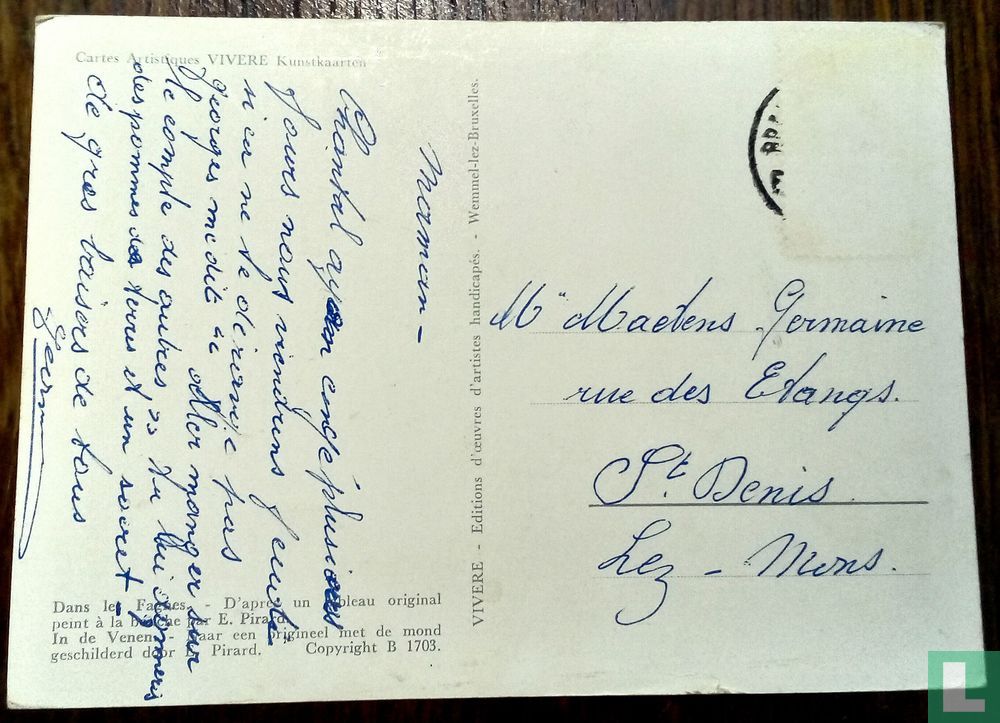 Cartes Artistiques VIVERE Kunstkaarten
Maman -
Chantal ayan congé plusieurs
Jours nous viendrons Jeudi
si ca ne te dérange pas
Georges me dit "Aller manger sur
le compte des autres" tu lui donneras
des pommes de terres et un soret -
de gros baisers de tous
Germ
Dans les Fagnes. - D'après un tableau original
peint à la bouche par E. Pirard.
In de Venen. - Naar een origineel met de mond
geschilderd door E. Pirard. Copyright B 1703.
VIVERE - Editions d'œuvres d'artistes handicapés. - Wemmel-lez-Bruxelles.
Me Maetens Germaine
rue des Etangs.
St. Denis
Lez - Mons.